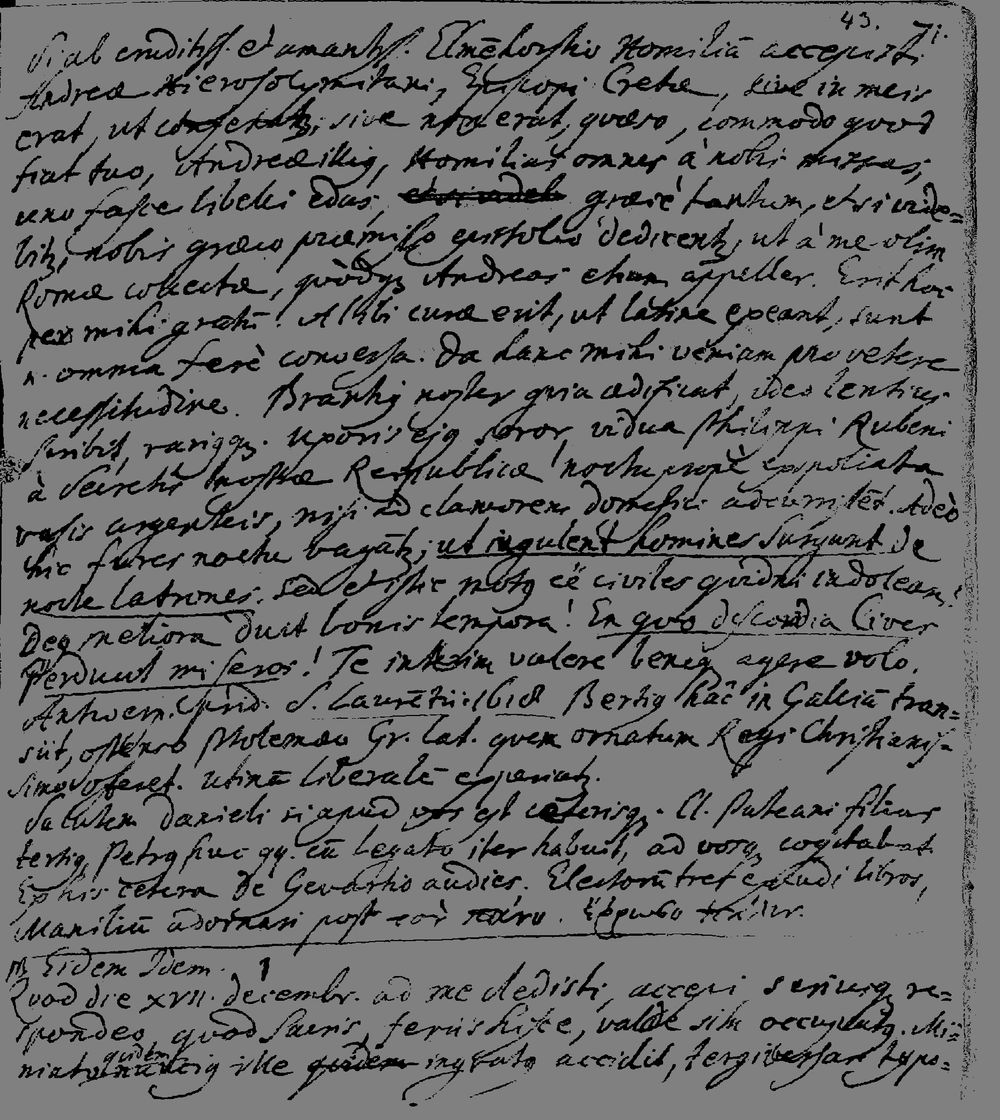 43. 71.
Si ab eruditiss. et amantiss. Elmēhorstio Homiliā accepisti
Andreæ Hierosolymitani, Episcopi Cretæ, sive in meis
erat, ut sive non erat, quæso, commodo quod
fiat tuo, Andreæ illig, Homilias omnes à nobis missas,
uno fasce libelli edas, græcè tantum, etsi vide=
bitz, nobis græco præmisso epistolio dedicentz, ut à me olim
Romæ collectæ, quòdqz Andreas etiam appeller. Erit hoc
per mihi gratū. Alibi curæ erit, ut latine exeant, sunt
n. omnia ferè conversa. Da hanc mihi veniam pro vetere
necessitudine. Brantig noster quia ædificat, ideo lentius
scribit, rariqqz. Uxoris ejg soror, vidua Philippi Rubeni
à Secretis nostræ Reipublicæ noctu propè expoliata
vasis argenteis, nisi ad clamorem domestici adcurrissēt. Adeò
hic fures noctu vagātz, ut jugulent homines surgunt de
nocte latrones. Sed et istic motg eē civiles quidni indoleam!
Deg meliora duit bonis tempora! En quo discordia Cives
Perduxit miseros! Te interim valere beneqz agere volo.
Antwerp. S. Laurētii. 1618 Bertig hāc in Galliā tran=
siit, ostenso Ptolemæo Gr. Lat. quem ornatum Regi Christianis=
simo offeret. utinā liberalē experiatz.
Salutem Danieli si apud vos est cæterisqz. Cl. Puteani filius
tertig, Petrg huc qq. cū Legato iter habuit, ad vosqz cogitabat
Ex his cetera de Gevartio audies. Electorū tres excudi libros,
Maniliū adornari post τὸν πάνυ. ἔρρωσο
Eidem Idem.
Quod die XVII. decembr. ad me dedisti, accepi, seriusqz re=
spondeo, quod sacris, feriis hisce, valde sim occupatg. Mi=
quidem
ille ingratg accidit, tergiversari typo=